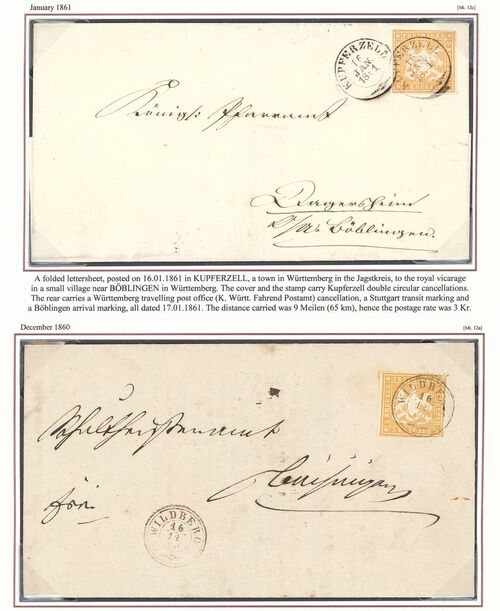 January 1861
[Mi. 12c]
KUPFERZELL
16
JAN.
1861
KUPFERZELL
16
Königs: Pfarramt
Dagersheim
O/A. Böblingen.
A folded lettersheet, posted on 16.01.1861 in KUPFERZELL, a town in Württemberg in the Jagstkreis, to the royal vicarage
in a small village near BÖBLINGEN in Württemberg. The cover and the stamp carry Kupferzell double circular cancellations.
The rear carries a Württemberg travelling post office (K. Württ. Fahrend Postamt) cancellation, a Stuttgart transit marking and
a Böblingen arrival marking, all dated 17.01.1861. The distance carried was 9 Meilen (65 km), hence the postage rate was 3 Kr.
December 1860
[Mi. 12a]
WILDBERG
16
Schultheißenamt
frei
WILDBERG
16
12